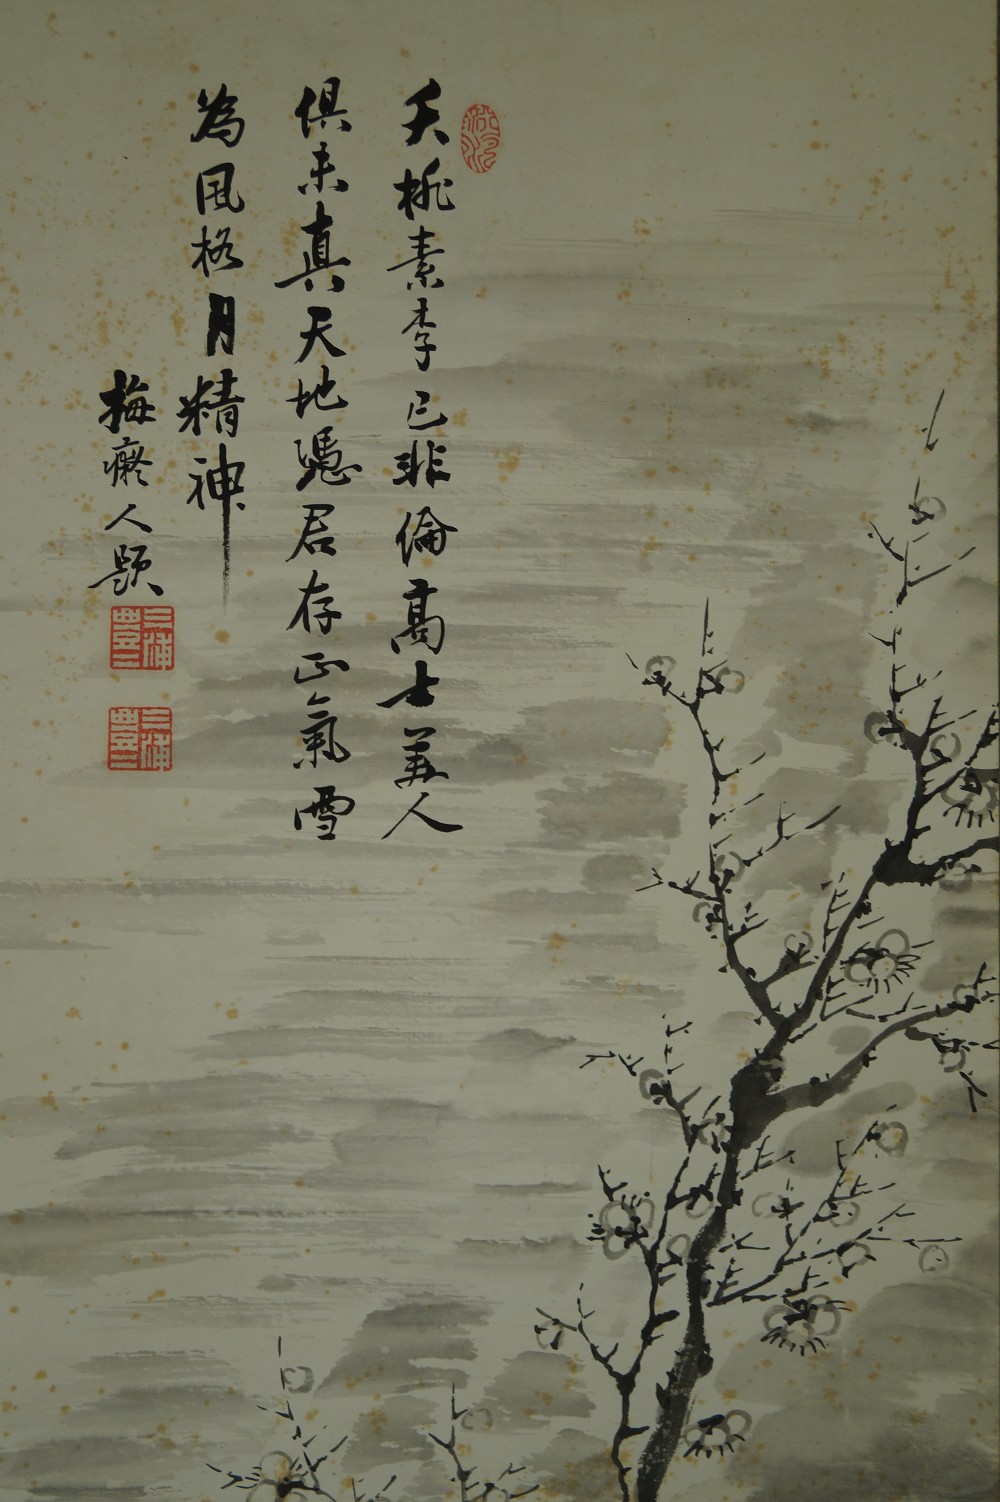 夭桃素李已非倫高士美人
俱未真天地憑君存正氣雪
為風格月精神
梅癡人題
三浦
三浦